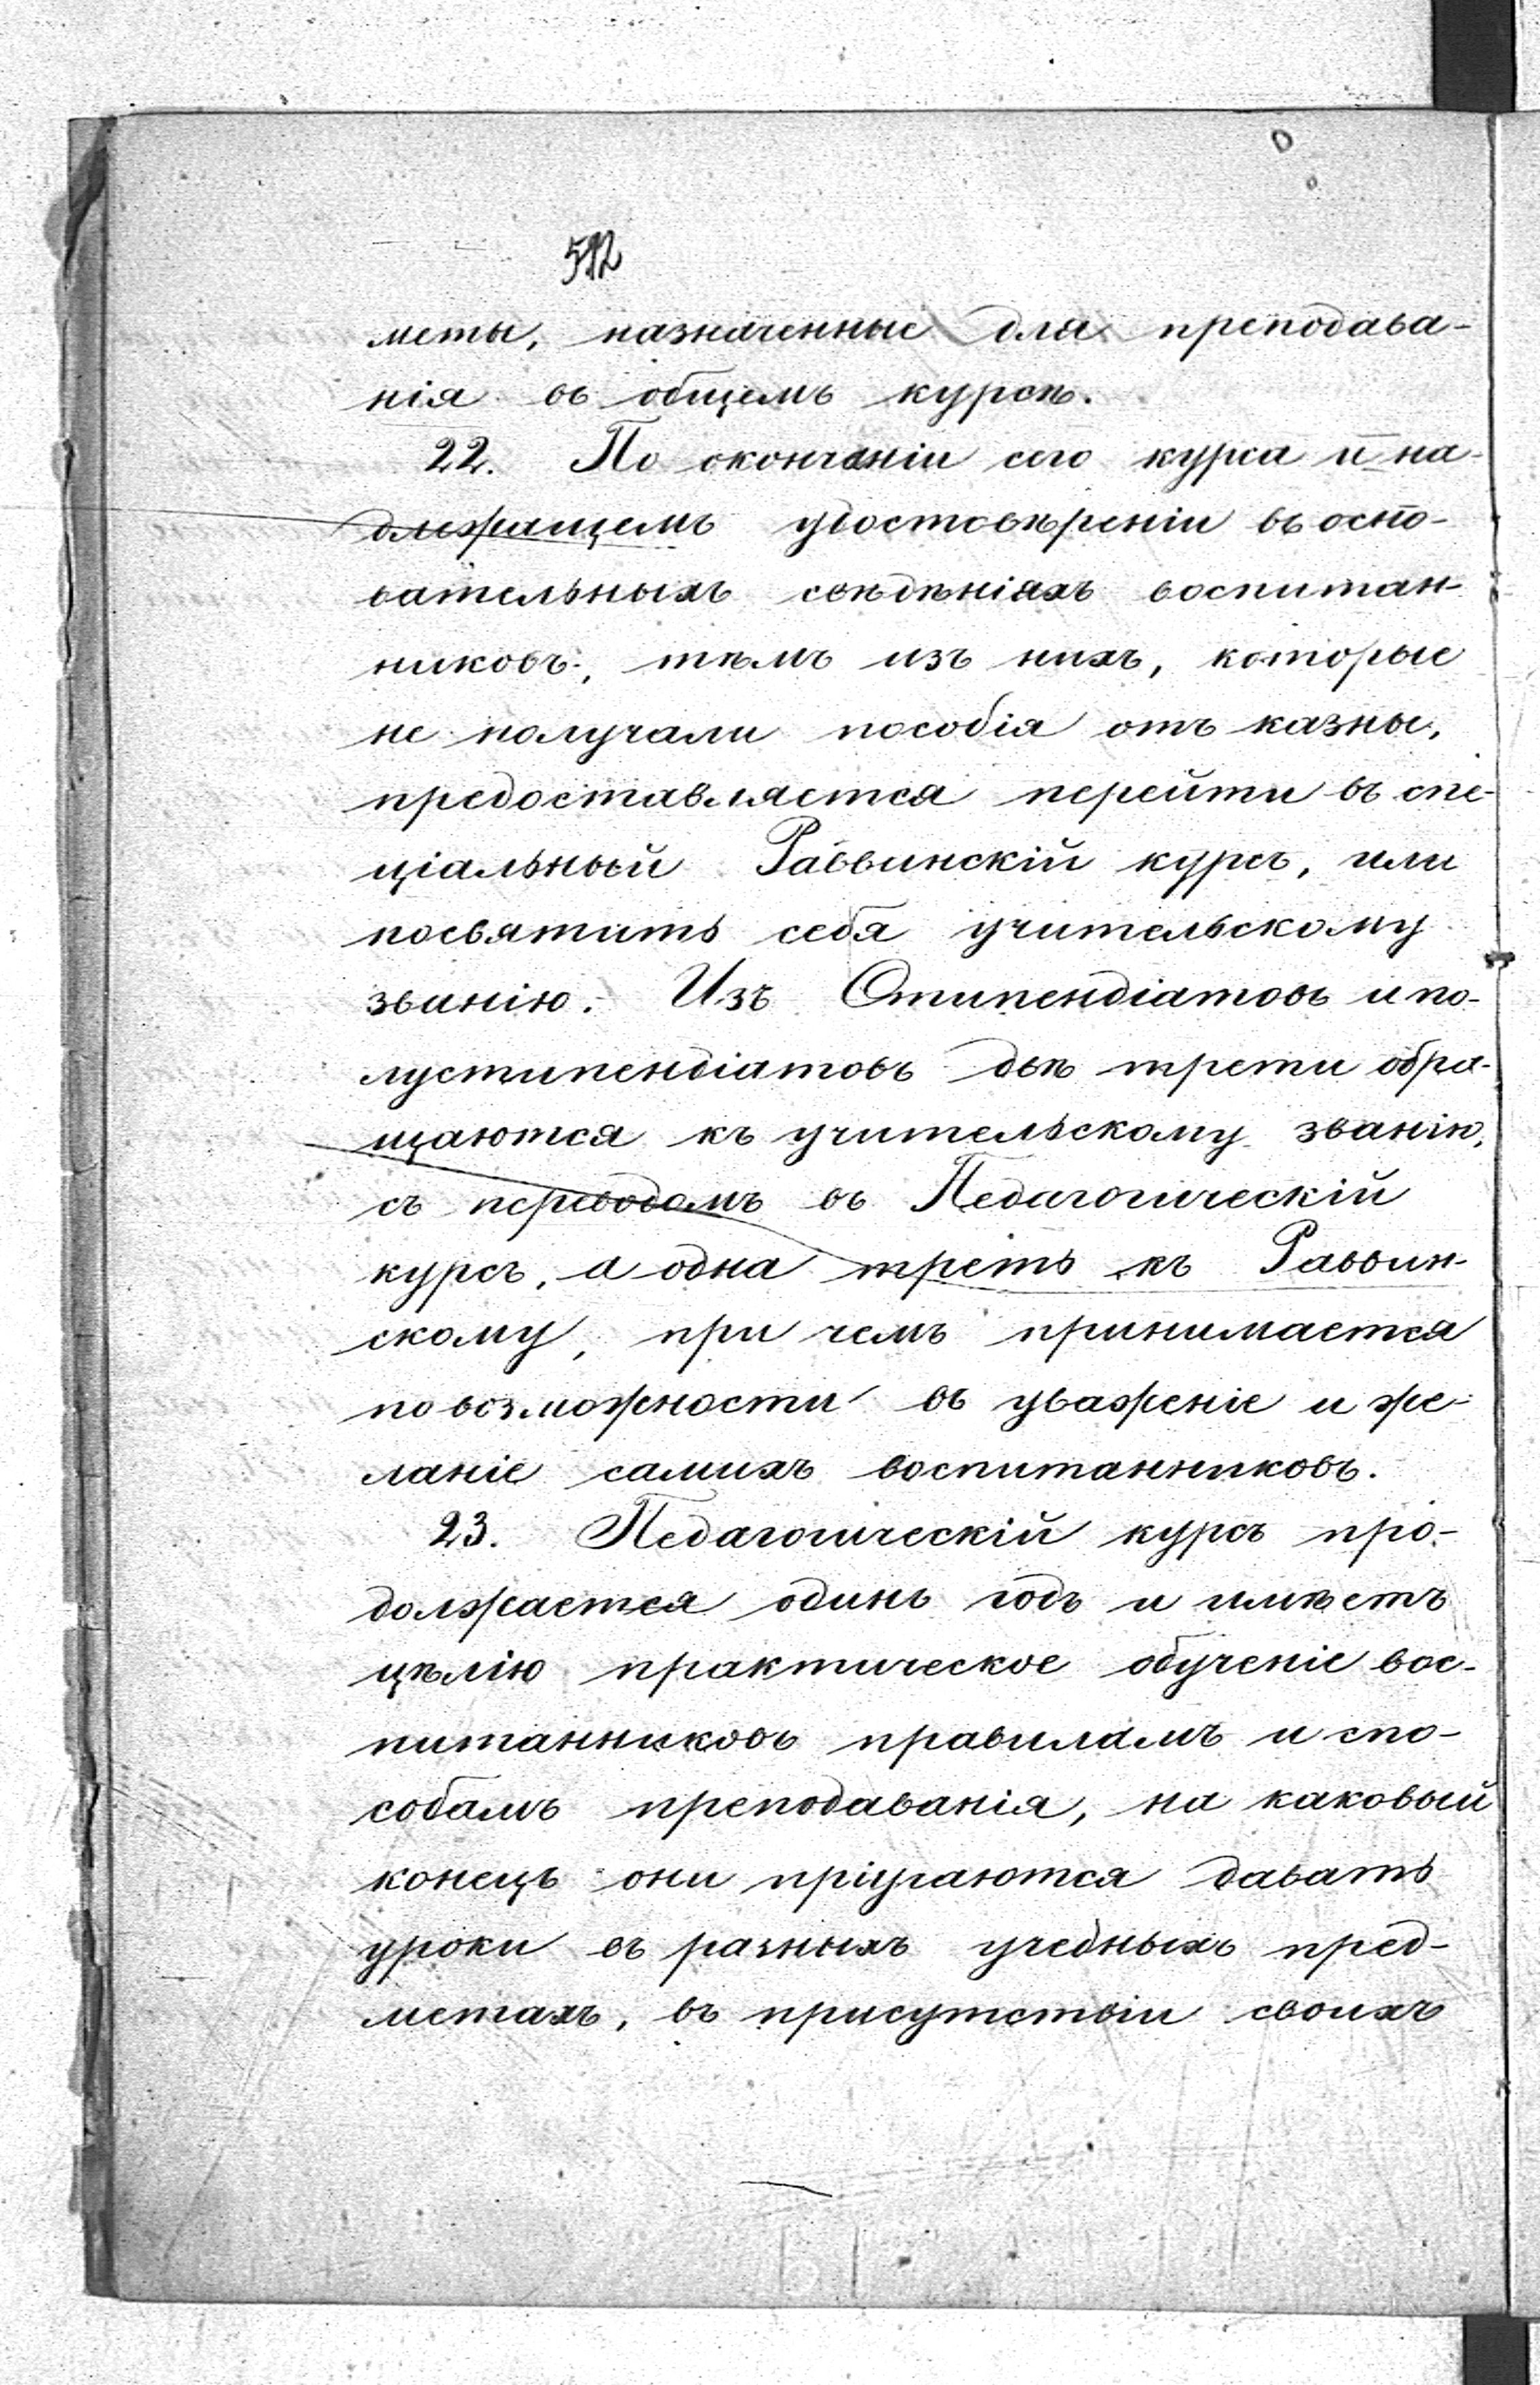 592
меты, назначенные для преподава-
нія въ общемъ курсѣ.
22. По окончаніи сего курса и на-
длежащемъ удостовѣреніи въ осно-
вательныхъ свѣдѣніяхъ воспитан-
никовъ, тѣмъ изъ нихъ, которые
не получали пособія отъ казны,
предоставляется перейти въ спе-
ціальный Раввинскій курсъ, или
посвятить себя учительскому
званію. Изъ Стипендіатовъ и по-
лустипендіатовъ двѣ трети обра-
щаются къ учительскому званію,
съ переводомъ въ Педагогическій
курсъ, а одна треть къ Раввин-
скому, при чемъ принимается
по возможности въ уваженіе и же-
ланіе самихъ воспитанниковъ.
23. Педагогическій курсъ про-
должается одинъ годъ и имѣетъ
цѣлію практическое обученіе вос-
питанниковъ правиламъ и спо-
собамъ преподаванія, на каковый
конецъ они пріучаются давать
уроки въ разныхъ учебныхъ пред-
метахъ, въ присутствіи своихъ